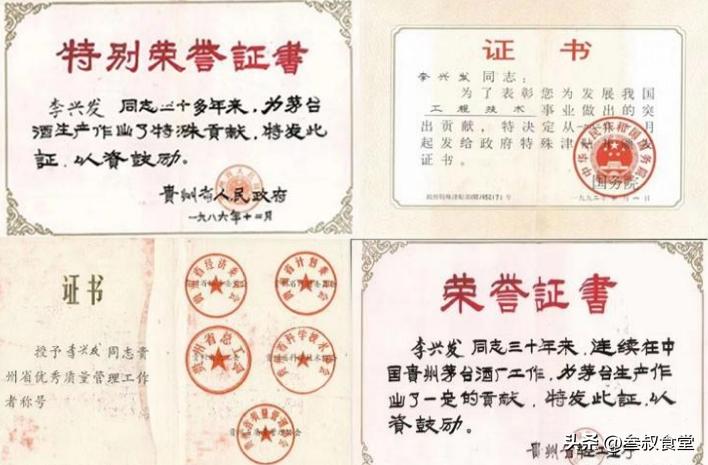 特别荣誉証書
李兴发同志三十多年来，为茅台
酒生产作出了特殊贡献，特发此
証，以资鼓励。
貴州省人民政府
一九八六年十二月
证书
李兴发同志：
为了表彰您为发展我国
工程技术事业做出的突
出贡献，特决定从
起发给政府特殊津
证书。
中华人民共和国国务院
国务院
证书
授予李兴发同志贵
州省优秀质量管理工作
者称号
贵州省经济委员会
贵州省计划委员会
贵州省总工会
贵州省科学技术
荣誉証書
李兴发同志三十年来，连续在中
国貴州茅台酒厂工作，为茅台生产作
出了一定的贡献，特发此証，以
资鼓励。
貴州省
头条@叁叔食堂